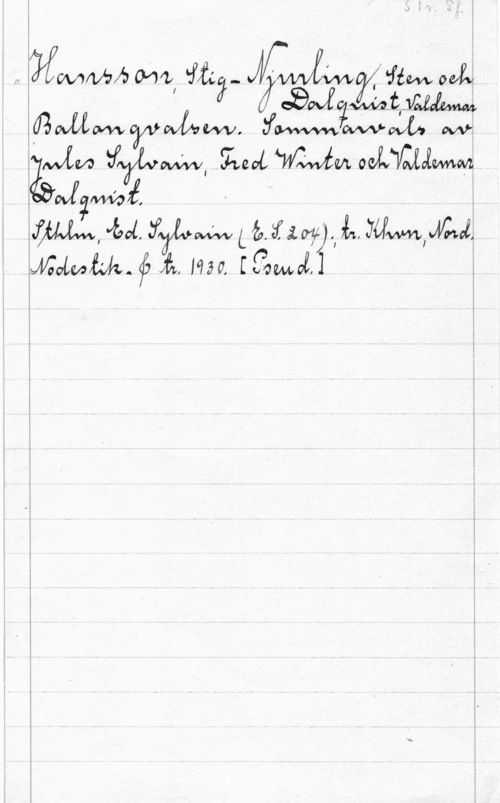 Str. Sf.
Hansson, Stig - Njurling, Sten och
Dalquist, Valdemar
Ballongvalsen. Sommarvals av
Jules Sylvain, Fred Winter och Valdemar
Dalquist.
Sthlm, Ed. Sylvain (E. S. 204); tr. Khvn, Nord.
Nodestik. ⌀ tr. 1930. [Pseud.]